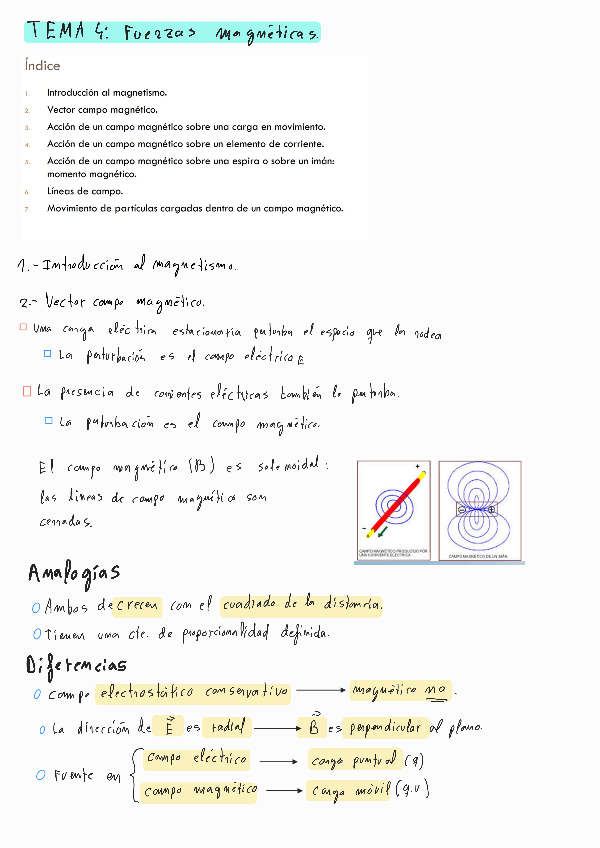 TEMA 4: Fuerzas magnéticas.
Índice
1. Introducción al magnetismo.
2. Vector campo magnético.
3. Acción de un campo magnético sobre una carga en movimiento.
4. Acción de un campo magnético sobre un elemento de corriente.
5. Acción de un campo magnético sobre una espira o sobre un imán:
momento magnético.
6. Líneas de campo.
7. Movimiento de partículas cargadas dentro de un campo magnético.
1.- Introducción al magnetismo.
2.- Vector campo magnético.
Una carga eléctrica estacionaria perturba el espacio que la rodea
La perturbación es el campo eléctrico E
La presencia de corrientes eléctricas también lo perturba.
La perturbación es el campo magnético.
El campo magnético (B) es solenoidal:
las líneas de campo magnético son
cerradas.
+
-
CAMPO MAGNÉTICO PRODUCIDO POR
UNA CORRIENTE ELÉCTRICA
CAMPO MAGNÉTICO DE UN IMÁN
Analogías
Ambos decrecen con el cuadrado de la distancia.
Tienen una cte. de proporcionalidad definida.
Diferencias
Campo electrostático conservativo → magnético no.
La dirección de E⃗ es radial → B⃗ es perpendicular al plano.
Fuente en { campo eléctrico → carga puntual (q)
campo magnético → carga móvil (q.v)